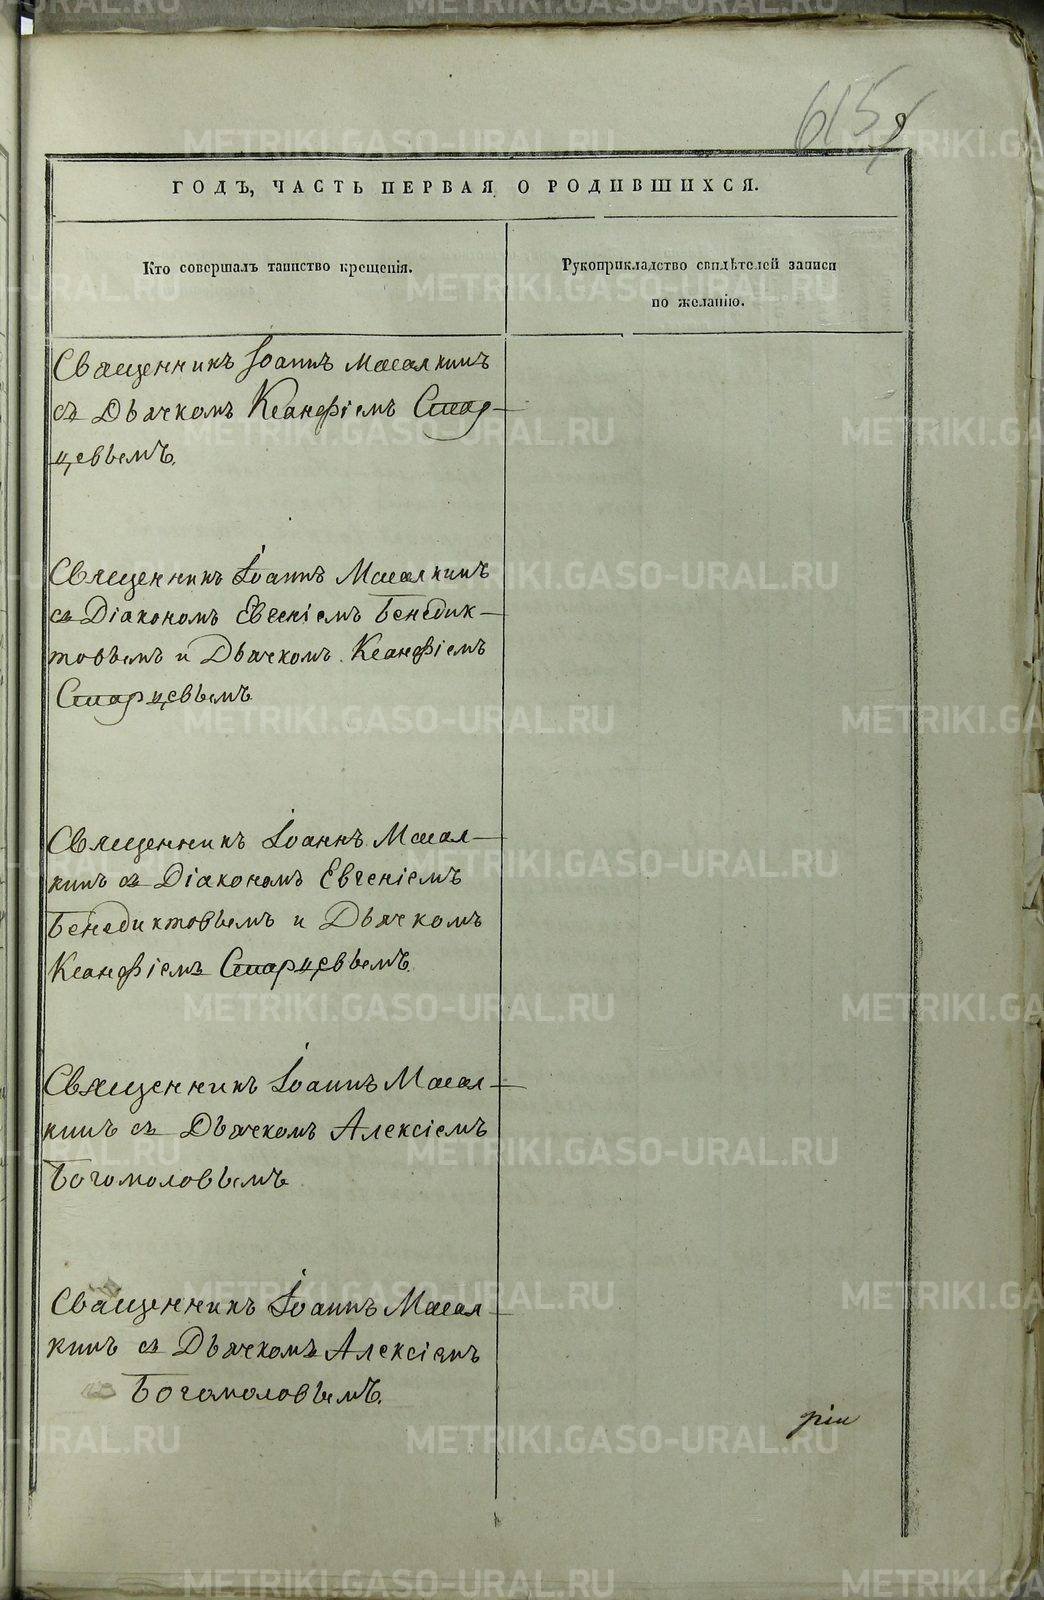 615
8
ГОДЪ, ЧАСТЬ ПЕРВАЯ О РОДИВШИХСЯ.
Кто совершалъ таинство крещенія.
Рукоприкладство свидѣтелей записи
по желанію.
Священникъ Іоаннъ Масалкинъ
съ Дьячкомъ Ксанфіемъ Стар-
цевымъ.
Священникъ Іоаннъ Масалкинъ
съ Діакономъ Евгеніемъ Бенедик-
товымъ и Дьячкомъ Ксанфіемъ
Старцевымъ
Священникъ Іоаннъ Масал-
кинъ съ Діакономъ Евгеніемъ
Бенедиктовымъ и Дьячкомъ
Ксанфіемъ Старцевымъ.
Священникъ Іоаннъ Масал-
кинъ съ Дьячкомъ Алексіемъ
Богомоловымъ
Священникъ Іоаннъ Масал-
кинъ съ Дьячкомъ Алексіемъ
Богомоловымъ.
ріи
METRIKI.GASO-URAL.RU